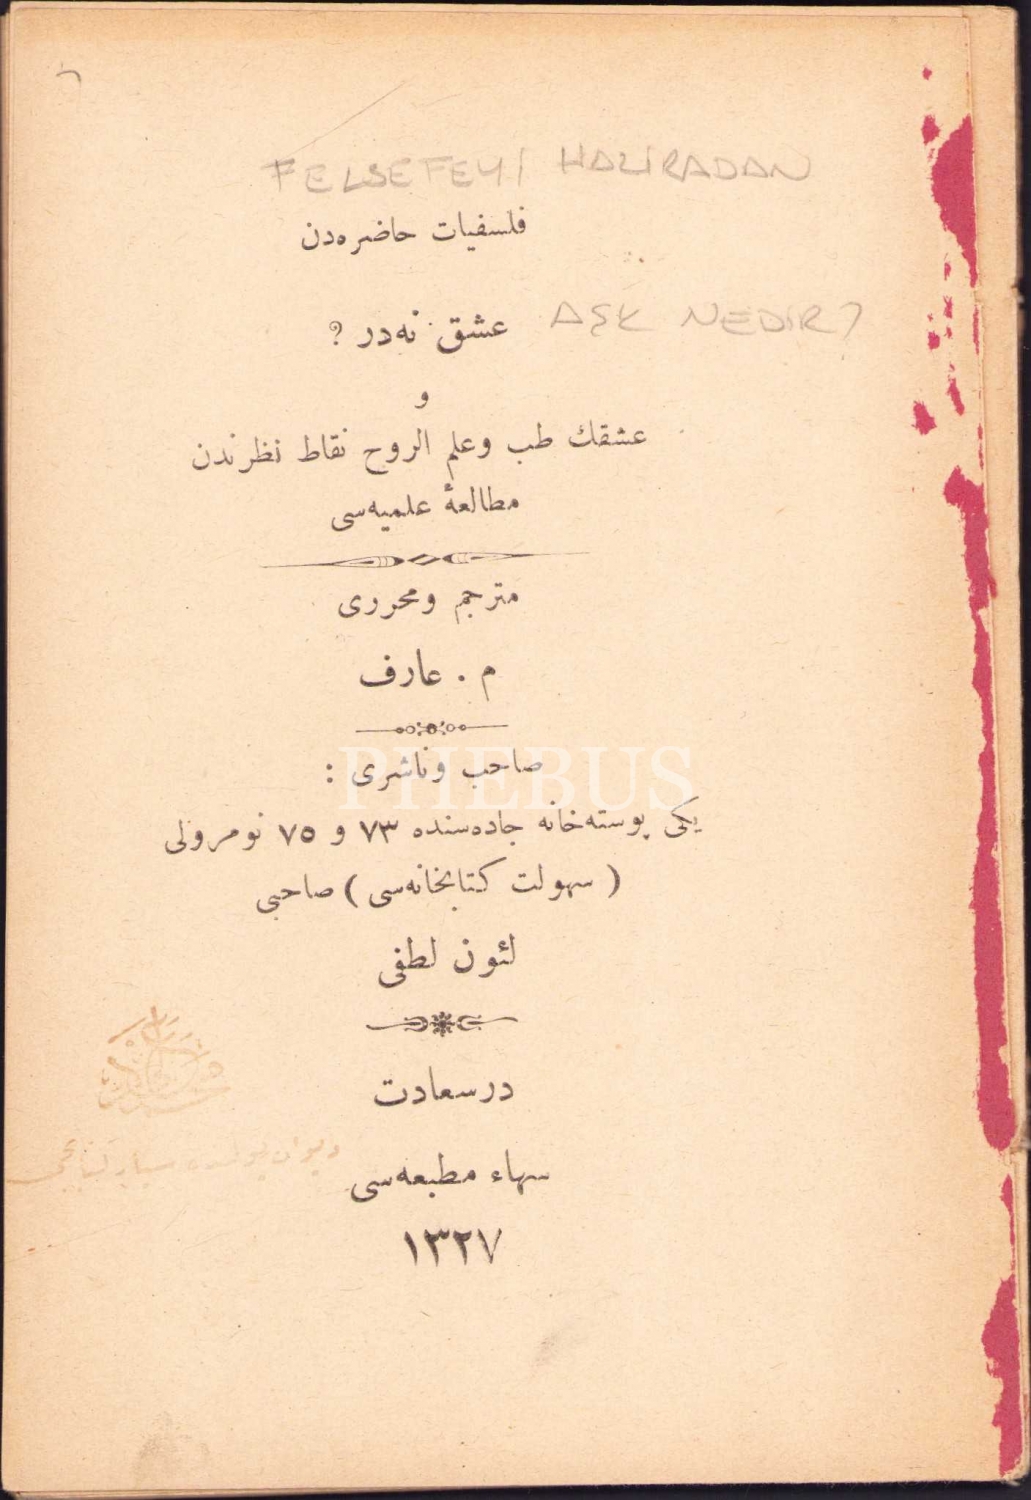 FELSEFEYİ HALİRADAN
فلسفیات حاضره‌دن
عشق نه‌در ؟ AŞK NEDİR?
و
عشقك طب وعلم الروح نقاط نظرندن
مطالعۀ علمیه‌سی
مترجم ومحرری
م . عارف
PHEBUS
صاحب وناشری :
یکی پوسته‌خانه جاده‌سنده ٧٣ و ٧٥ نومرولی
( سهولت کتابخانه‌سی ) صاحبی
لئون لطفی
درسعادت
سهاء مطبعه‌سی
١٣٢٧